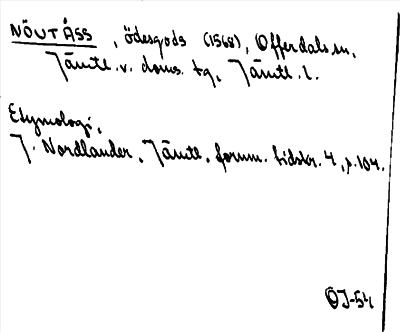 NÖUTÅSS, ödesgods (1568), Offerdals sn,
Jämtl. v. doms. tg, Jämtl. l.
Etymologi,
J. Nordlander, Jämtl. fornm. tidskr. 4, p. 104.
ÖJ-54